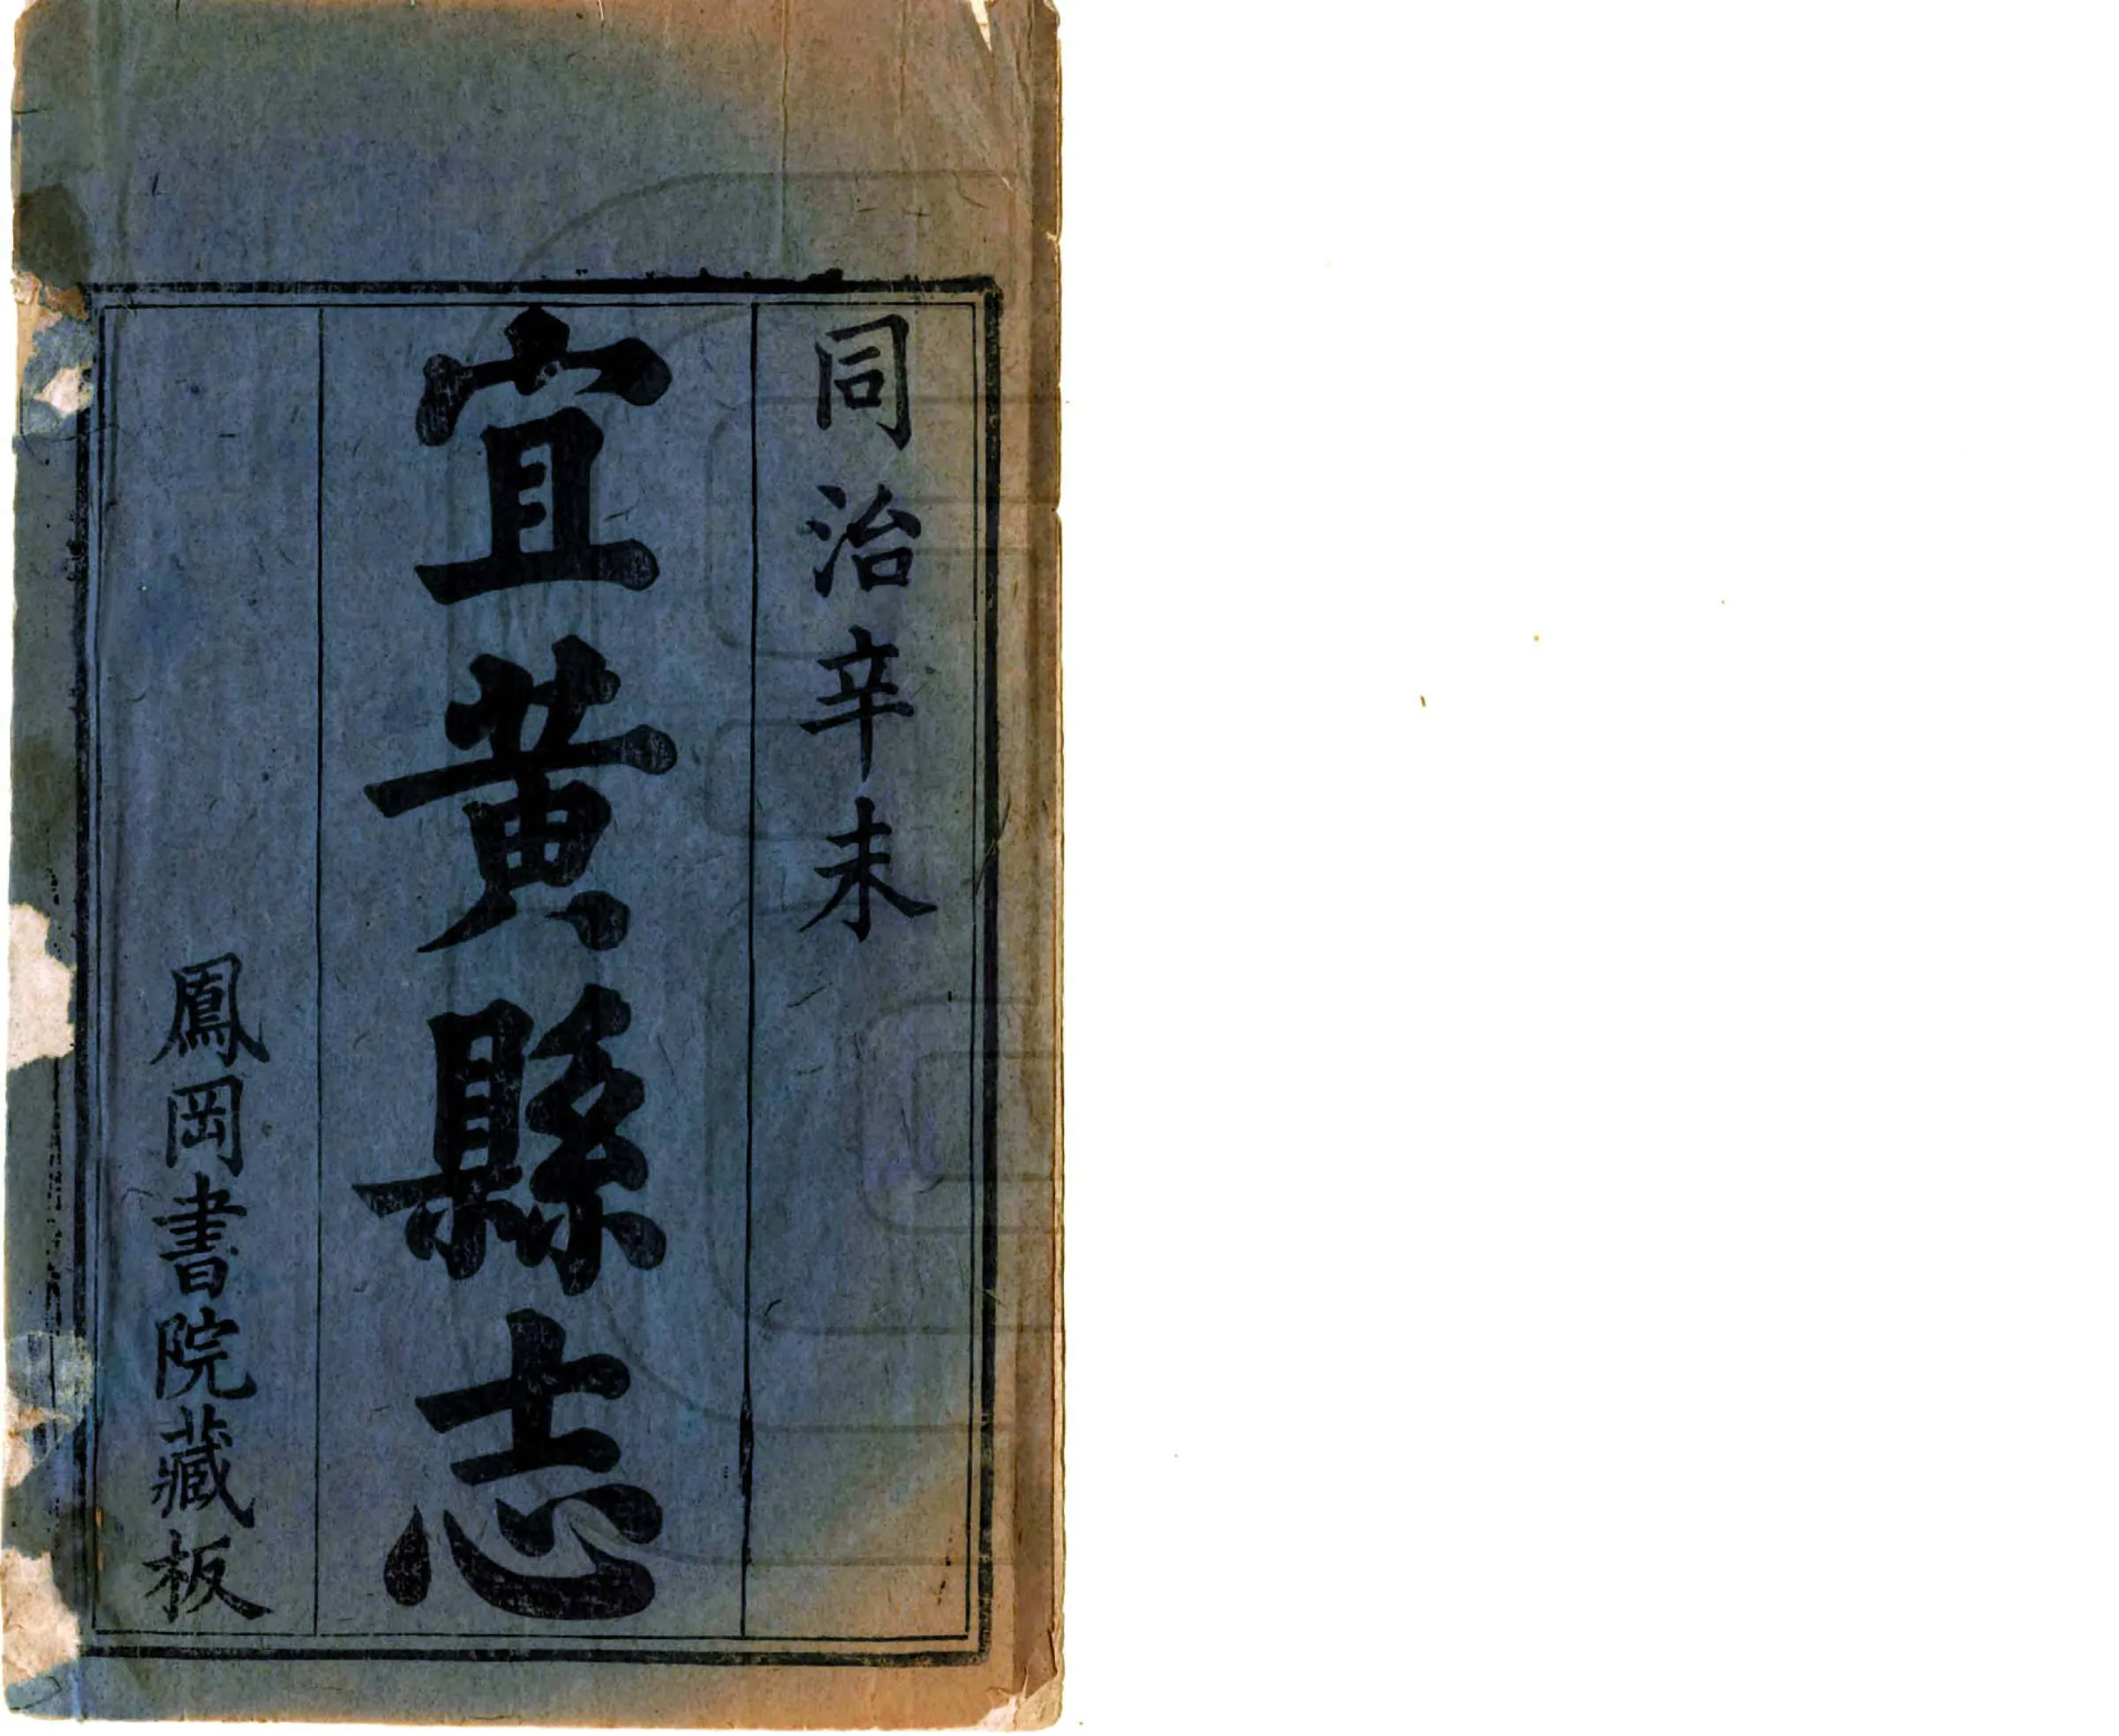 同治辛未
宜黃縣志
鳳岡書院藏板